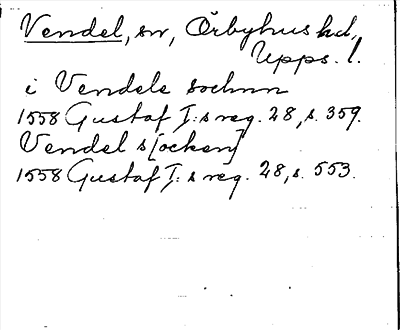 Vendel, sn, Örbyhus hd,
Upps. l.
i Vendele sochnn
1558 Gustaf I:s reg. 28, s. 359.
Vendel s[ocken]
1558 Gustaf I:s reg. 28, s. 553.